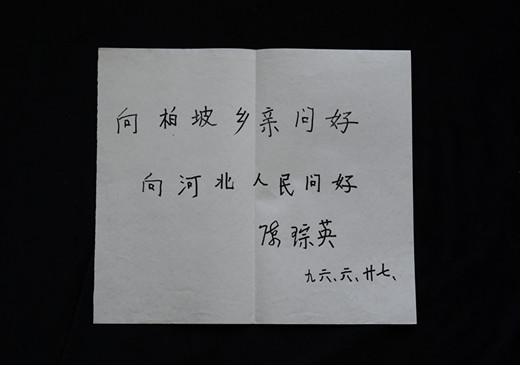 向柏坡乡亲问好
向河北人民问好
陈琮英
九六、六、廿七、